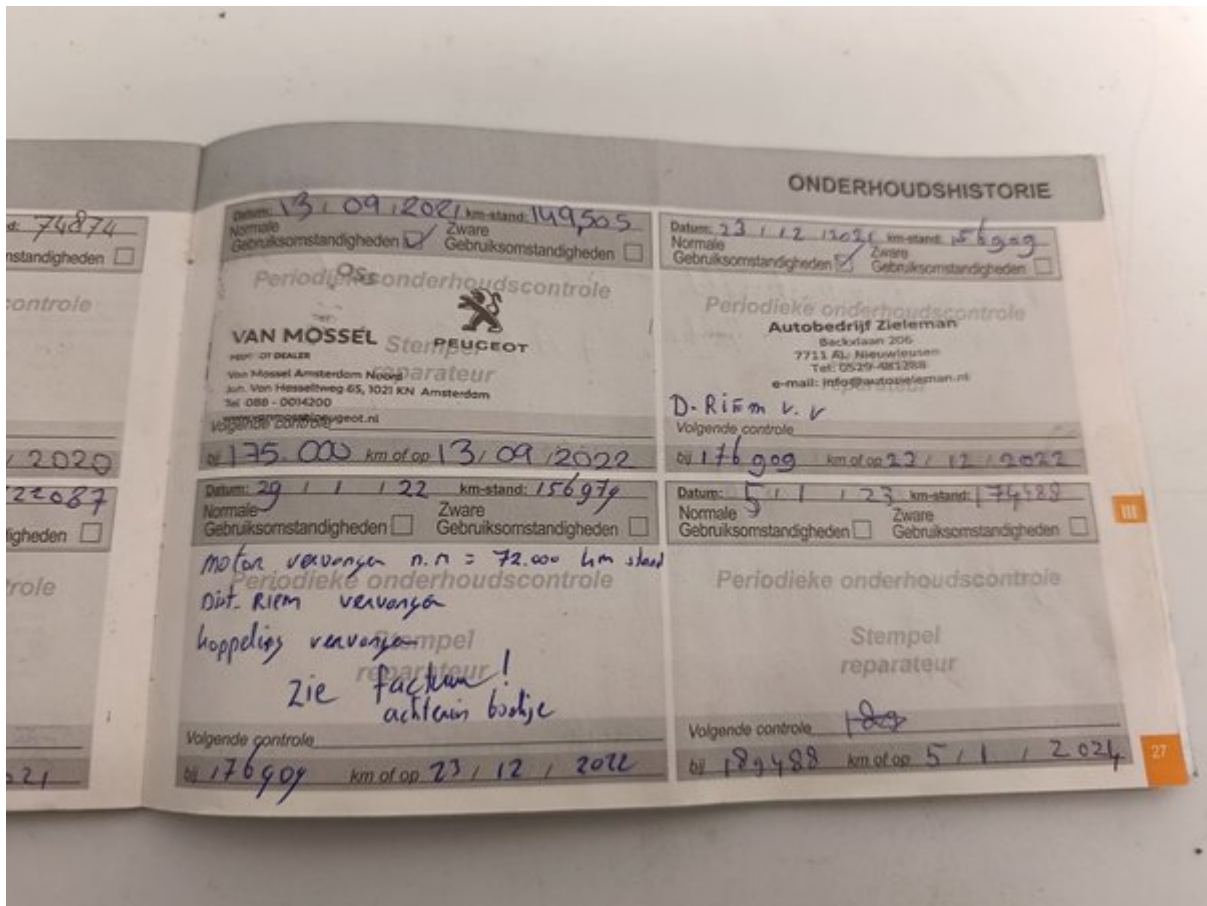 ONDERHOUDSHISTORIE
74874
nstandigheden
controle
2020
22087
igheden
trole
21
Datum: 13 / 09 / 2021 km-stand: 149,505
Normale Gebruiksomstandigheden Zware Gebruiksomstandigheden
Oss
Periodieke onderhoudscontrole
VAN MOSSEL PEUGEOT
PEUGEOT DEALER
Stempel reparateur
Van Mossel Amsterdam Noord
Joh. Van Hasseltweg 65, 1021 KN Amsterdam
Tel 088 - 0014200
www.vanmosselpeugeot.nl
Volgende controle
bij 175.000 km of op 13 / 09 / 2022
Datum: 23 / 12 / 2021 km-stand: 156909
Normale Gebruiksomstandigheden Zware Gebruiksomstandigheden
Periodieke onderhoudscontrole
Autobedrijf Zieleman
Backxlaan 206
7711 AL Nieuwleusen
Tel: 0529-481288
e-mail: info@autozieleman.nl
reparateur
D-Riem v.v
Volgende controle
bij 176909 km of op 23 / 12 / 2022
Datum: 29 / 1 / 22 km-stand: 156979
Normale Gebruiksomstandigheden Zware Gebruiksomstandigheden
Periodieke onderhoudscontrole
motor vervangen n.n = 72.000 km stand
Dist. Riem vervangen
koppeling vervangen
Stempel reparateur
zie factuur!
achterin boekje
Volgende controle
bij 176909 km of op 23 / 12 / 2022
Datum: 5 / 1 / 23 km-stand: 174488
Normale Gebruiksomstandigheden Zware Gebruiksomstandigheden
Periodieke onderhoudscontrole
Stempel
reparateur
Volgende controle
bij 189488 km of op 5 / 1 / 2024
III
27